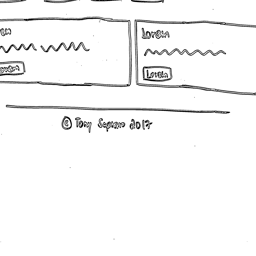 em Lorem
orem Lorem
© Tony Soprano 2017